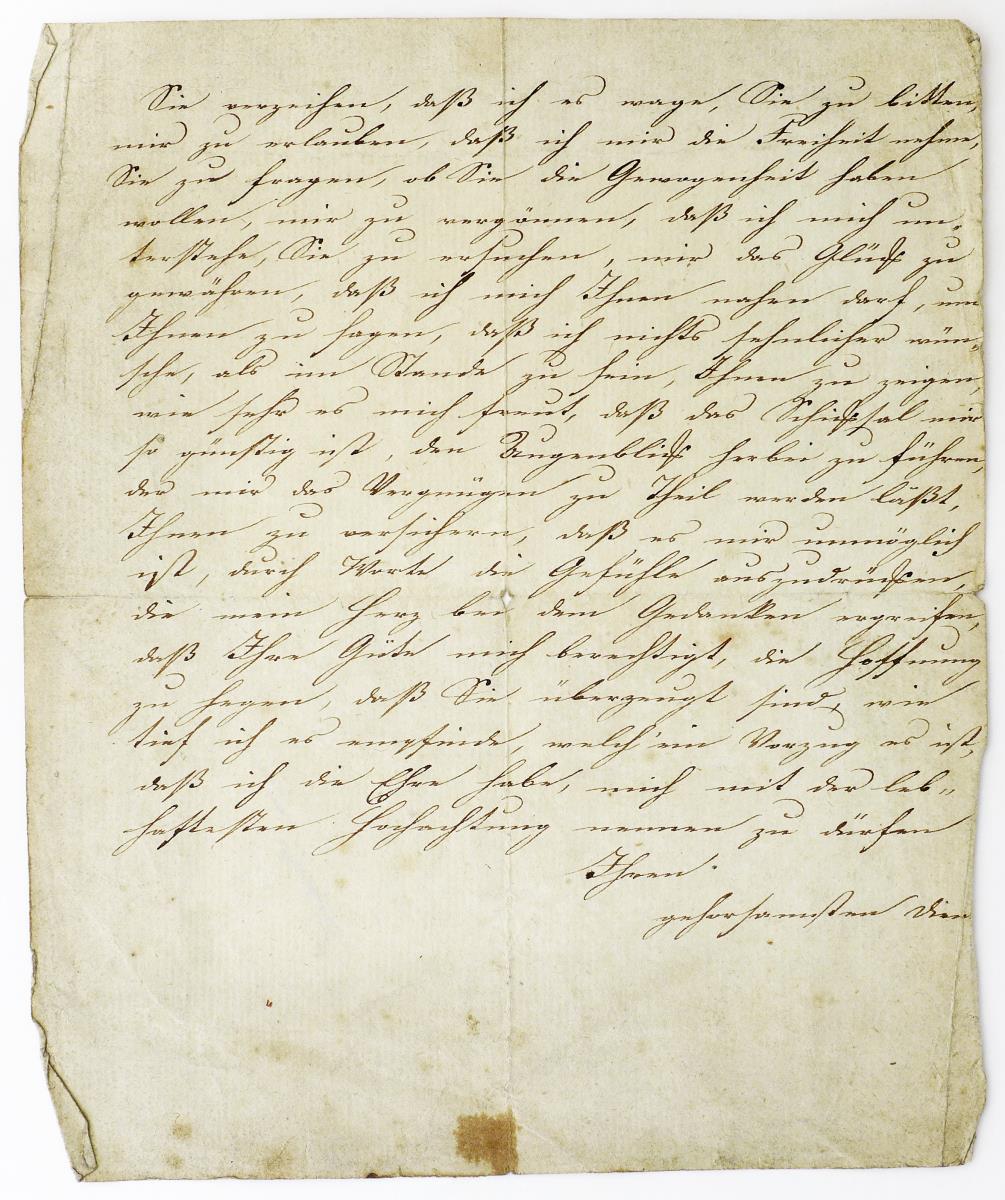 Sie verzeihen, daß ich es wage, Sie zu bitten,
mir zu erlauben, daß ich mir die Freiheit nehme,
Sie zu fragen, ob Sie die Gewogenheit haben
wollen, mir zu vergönnen, daß ich mich un„
terstehe, Sie zu ersuchen, mir das Glück zu
gewähren, daß ich mich Ihnen nahen darf, um
Ihnen zu sagen, daß ich nichts sehnlicher wün„
sche, als im Stande zu sein, Ihnen zu zeigen,
wie sehr es mich freut, daß das Schicksal mir
so günstig ist, den Augenblick herbei zu führen,
der mir das Vergnügen zu Theil werden läßt,
Ihnen zu versichern, daß es mir unmöglich
ist, durch Worte die Gefühle auszudrücken,
die mein Herz bei dem Gedanken ergreifen,
daß Ihre Güte mich berechtigt, die Hoffnung
zu hegen, daß Sie überzeugt sind, wie
tief ich es empfinde, welch' ein Vorzug es ist,
daß ich die Ehre habe, mich mit der leb„
haftesten Hochachtung nennen zu dürfen
Ihren
gehorsamsten Dien